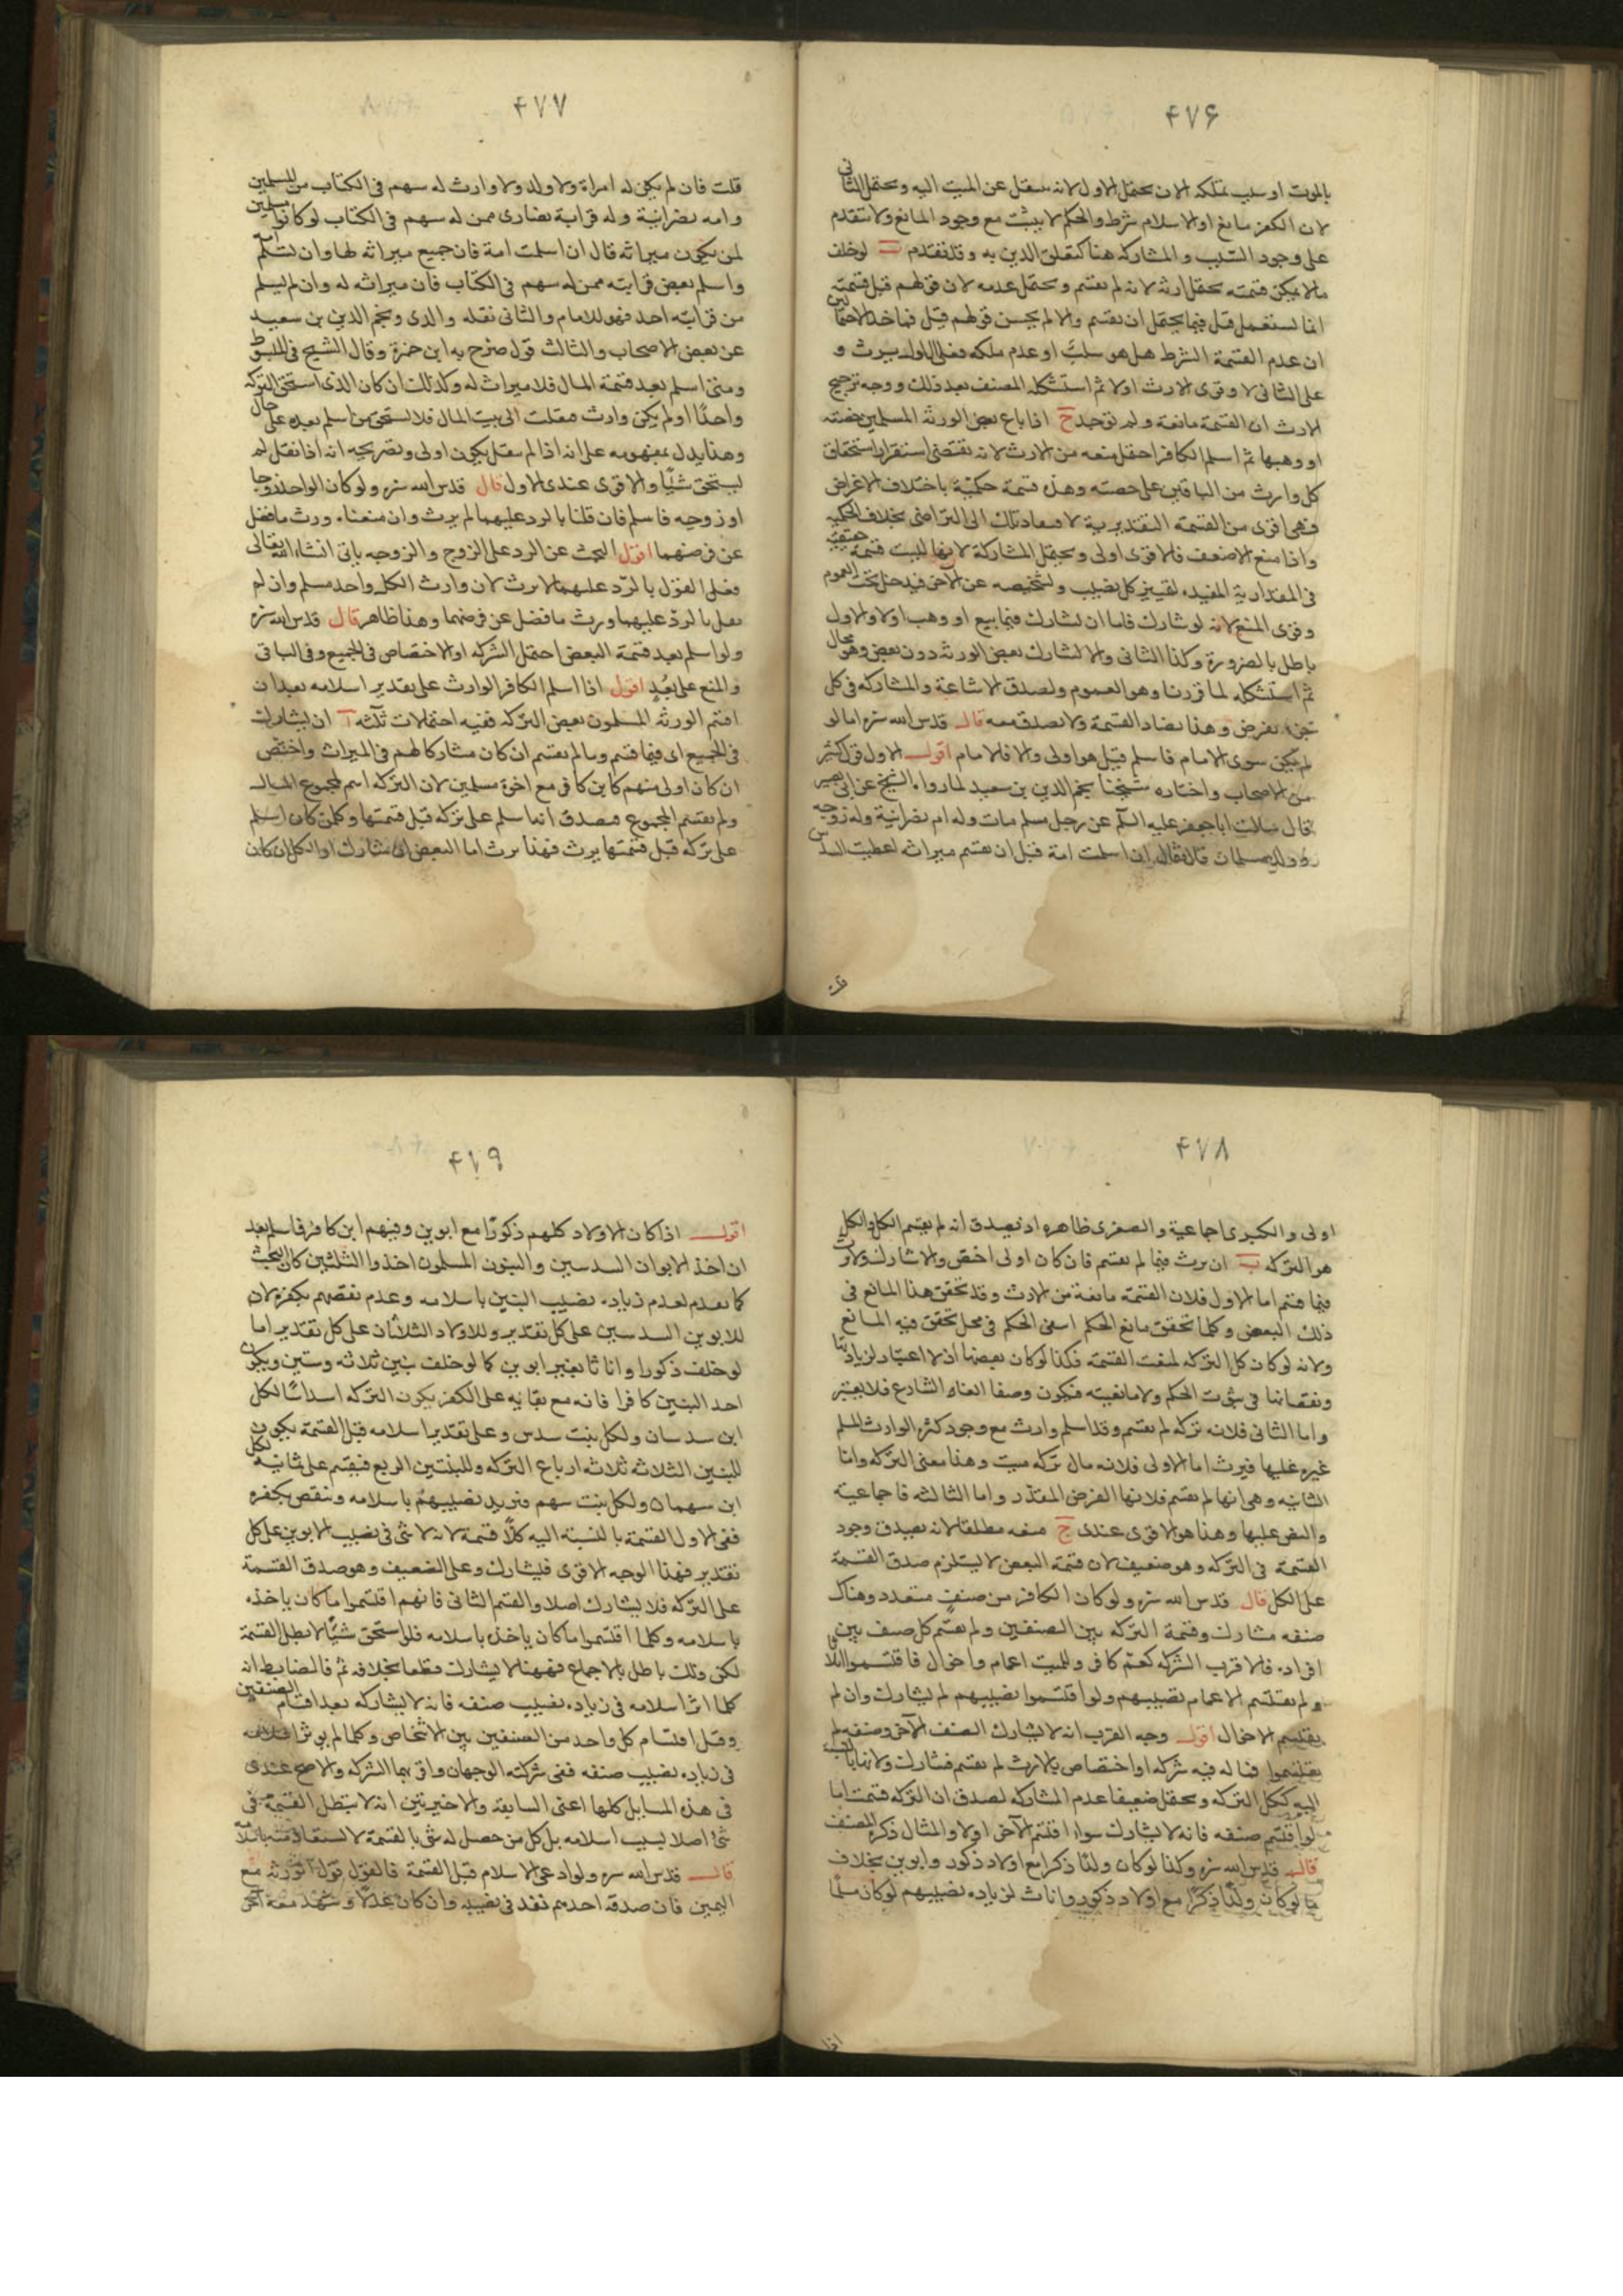 ۴۷۶
بالموت او سبب تملكه الان يحتمل الاول لانه ينتقل عن الميت اليه ويحتمل الثانى
لان الكفر مانع او الاسلام شرط والحكم لا يثبت مع وجود المانع ولا يتقدم
على وجود السبب والمشاركة هنا كتعلق الدين به وقد تقدم ب لو خلف
ما لا يمكن قسمته يحتمل ارثه لانه لم يقتسم ويحتمل عدمه لان قولهم قبل قسمته
انما يستعمل قبل فيما يحتمل ان يقتسم والا لم يحسن قولهم قبل فماخذ الاحتمالين
ان عدم القسمة الشرط هل هو سلب او عدم ملكه فعلى الاول يرث و
على الثانى لا وقوى الارث اولا ثم استشكله المصنف بعد ذلك ووجه ترجيح
الارث ان القسمة مانعة ولم توجد ج اذا باع بعض الورثة المسلمين حصته
او وهبها ثم اسلم الكافر احتمل منعه من الارث لانه يقتضى استقرار استحقاق
كل وارث من الباقين على حصته وهذه قسمة حكمية باختلاف الاغراض
وهى اقوى من القسمة التقديرية لا ستناد تلك الى التراضى بخلاف الحكمية
واذا منع الاضعف فالاقوى اولى ويحتمل المشاركة لانها ليست قسمة حقيقة
فى المقدارية المفيدة لتمييز كل نصيب وتشخيصه عن الآخر فيدخل تحت العموم
وقوى المنع لانه لو شارك فاما ان يشارك فيما بيع او وهب اولا والاول
باطل بالضرورة وكذا الثانى والا لشارك بعض الورثة دون بعض وهو محال
ثم استشكله لما قررنا وهو العموم ولصدق الاشاعة والمشاركة فى كل
جزء يفرض وهذا يضاد القسمة ولا يصدق معه قال قدس الله سره اما لو
لم يكن سوى الامام فاسلم قيل هو اولى والا فالامام اقول الاول قول اكثر
من الاصحاب واختاره شيخنا نجم الدين بن سعيد لما رواه الشيخ عن ابى بصير
قال سالت ابا جعفر عليه السلم عن رجل مسلم مات وله ام نصرانية وله زوجه
وولد مسلمان قال فقال ان اسلمت امه قبل ان يقتسم ميراثه اعطيت السدس
قلت
۴۷۷
قلت فان لم يكن له امراة ولا ولد ولا وارث له سهم فى الكتاب من المسلمين
وامه نصرانية وله قرابة نصارى ممن له سهم فى الكتاب لو كانوا مسلمين
لمن يكون ميراثه قال ان اسلمت امه فان جميع ميراثه لها وان لم تسلم امه
واسلم بعض قرابته ممن له سهم فى الكتاب فان ميراثه له وان لم يسلم
من قرابته احد فهو للامام والثانى نقله والدى ونجم الدين بن سعيد
عن بعض الاصحاب والثالث قول صرح به ابن حمزة وقال الشيخ فى المبسوط
ومتى اسلم بعد قسمة المال فلا ميراث له وكذلك ان كان الذى استحق التركة
واحدًا او لم يكن وارث فنقلت الى بيت المال فلا يستحق من اسلم بعده على حال
وهذا يدل بمفهومه على انه اذا لم ينقل يكون اولى وبصريحه انه اذا نقل لم
يستحق شيئًا والاقوى عندى الاول قال قدس الله سره ولو كان الواحد زوجا
او زوجه فاسلم فان قلنا بالرد عليهما لم يرث وان منعناه ورث ما فضل
عن فرضهما اقول البحث عن الرد على الزوج والزوجه ياتى انشاء الله تعالى
فعلى القول بالرد عليهما لا يرث لان وارث الكل واحد مسلم وان لم
يقل بالرد عليهما ورث ما فضل عن فرضهما وهذا ظاهر قال قدس الله سره
ولو اسلم بعد قسمة البعض احتمل الشركة او الاختصاص فى الجميع وفى الباقى
والمنع على بُعدٍ اقول اذا اسلم الكافر الوارث على تقدير اسلامه بعد ان
اقتسم الورثه المسلمون بعض التركه ففيه احتمالات ثلثه آ ان يشارك
فى الجميع اى فيما قسم وما لم يقتسم ان كان مشاركا لهم فى الميراث واختص
ان كان اولى منهم كابن كافر مع اخوة مسلمين لان التركه اسم لمجموع المال
ولم يقتسم المجموع فصدق انه اسلم على تركه قبل قسمتها وكل من كان اسلم
على تركه قبل قسمتها يرث فهذا يرث اما البعض ان شارك او الكل ان كان
۴۷۸
اولى والكبرى اجماعية والصغرى ظاهره اذ يصدق انه لم يقتسم الكل والكل
هو التركه ب ان يرث فيما لم يقتسم فان كان اولى اختص والا شارك ولا يرث
فيما قسم اما الاول فلان القسمة مانعة من الارث وقد تحقق هذا المانع فى
ذلك البعض وكلما تحقق مانع الحكم انتفى الحكم فى محل تحقق فيه المانع
ولانه لو كان كل التركه لمنعت القسمة فكذا لو كان بعضها اذ لا اعتبار لزيادتها
ونقصانها فى ثبوت الحكم ولا مانعيته فيكون وصفا الغاه الشارع فلا يعتبر
واما الثانى فلانه تركه لم يقتسم وقد اسلم وارث مع وجود كثرة الوارث المسلم
غيره عليها فيرث اما الاولى فلانه مال تركه ميت وهذا معنى التركه واما
الثانيه وهى انها لم يقتسم فلانها الفرض المقدر واما الثالثه فاجماعية
والنص عليها وهذا هو الاقوى عندى ج منعه مطلقا لانه يصدق وجود
القسمة فى التركه وهو ضعيف لان قسمة البعض لا يستلزم صدق القسمة
على الكل قال قدس الله سره ولو كان الكافر من صنفٍ متعدد وهناك
صنفه مشارك وقسمة التركه بين الصنفين ولم يقسم كل صنف بين
افراده فالاقرب الشركه كعم كافر وللميت اعمام واخوال فاقتسموا اثلاثا
ولم يقتسم الاعمام نصيبهم ولو اقتسموا نصيبهم لم يشارك وان لم
يقتسم الاخوال اقول وجه القرب انه لا يشارك الصنف الآخر وصنفه لم
يقتسموا فما له فيه شركه او اختصاص بالارث لم يقتسم فشارك ولانها بالنسبة
اليه ككل التركه ويحتمل ضعيفا عدم المشاركه لصدق ان التركه قسمت اما
لو اقتسم صنفه فانه لا يشارك سواء اقتسم الآخر اولا والمثال ذكره المصنف
قال قدس الله سره وكذا لو كان ولدًا ذكرا مع اولاد ذكور وابوين بخلاف
ما لو كان ولدًا ذكرًا مع اولاد ذكور واناث لزيادة نصيبهم لو كان مسلمًا
اذا
۴۷۹
اقول اذا كان الاولاد كلهم ذكورًا مع ابوين وفيهم ابن كافر فاسلم بعد
ان اخذ الابوان السدسين والبنون المسلمون اخذوا الثلثين كان البحث
كما تقدم لعدم زيادة نصيب البنين باسلامه وعدم نقصهم بكفره لان
للابوين السدسين على كل تقدير وللاولاد الثلاثان على كل تقدير اما
لو خلف ذكورا واناثا بغير ابوين كما لو خلف بنين ثلاثه وبنتين ويكون
احد البنين كافرا فانه مع بقائه على الكفر يكون التركه اسداسًا لكل
ابن سدسان ولكل بنت سدس وعلى تقدير اسلامه قبل القسمة يكون
للبنين الثلاثه ثلاثه ارباع التركه وللبنتين الربع فيقسم على ثمانيه لكل
ابن سهمان ولكل بنت سهم فتزيد نصيبهم باسلامه وتنقص بكفره
ففى الاول القسمة بالنسبة اليه كلا قسمة لانه لا شئ فى نصيب الابوين على كل
تقدير فهذا الوجه الاقوى فليشارك وعلى الضعيف وهو صدق القسمة
على التركه فلا يشارك اصلا والقسم الثانى فانهم اقتسموا ما كان ياخذه
باسلامه وكلما اقتسموا ما كان ياخذه باسلامه فلو استحق شيئًا لابطل القسمة
لكن ذلك باطل بالاجماع فههنا لا يشارك قطعا بخلافه ثم فالضابط انه
كلما اثر اسلامه فى زيادة نصيب صنفه فانه لا يشاركه بعد اقتسام الصنفين
وقبل اقتسام كل واحد من الصنفين بين الاشخاص وكلما لم يوثر اسلامه
فى زيادة نصيب صنفه ففى شركته الوجهان واقربهما الشركه والاصح عندى
فى هذه المسايل كلها اعنى السابقة والاخيرتين انه لا يبطل القسمة فى
شئ اصلا بسبب اسلامه بل كل من حصل له شئ بالقسمة لا يستعاد منه باسلامه
قال قدس الله سره ولو ادعى الاسلام قبل القسمة فالقول قول الورثه مع
اليمين فان صدقه احدهم نفذ فى نصيبه وان كان عدلًا وشهد معه آخر